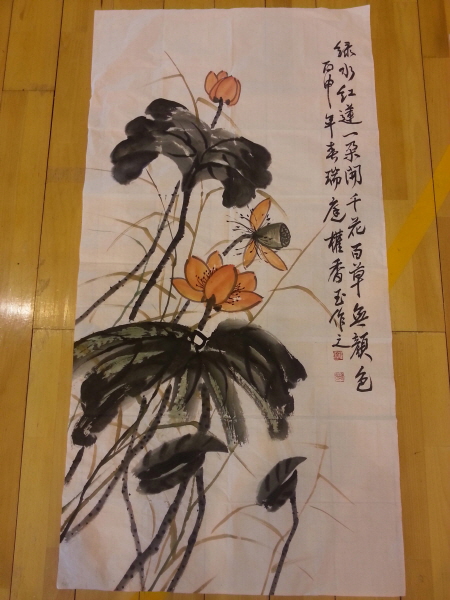 綠水紅蓮一朶開千花百草無顏色
丙申年春瑞庭權香玉作之